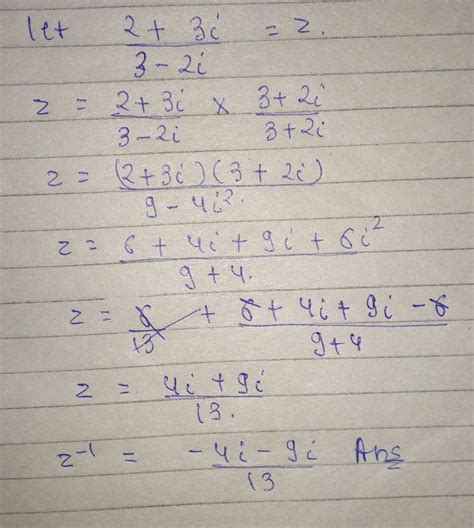 let (2 + 3i)/(3 - 2i) = z.
z = (2+3i)/(3-2i) × (3+2i)/(3+2i)
z = (2+3i)(3+2i)/(9-4i².)
z = (6 + 4i + 9i + 6i²)/(9+4.)
z = 6/13 + (6 + 4i + 9i - 6)/(9+4)
z = (4i + 9i)/(13.)
z⁻¹ = (-4i - 9i)/13 Ans